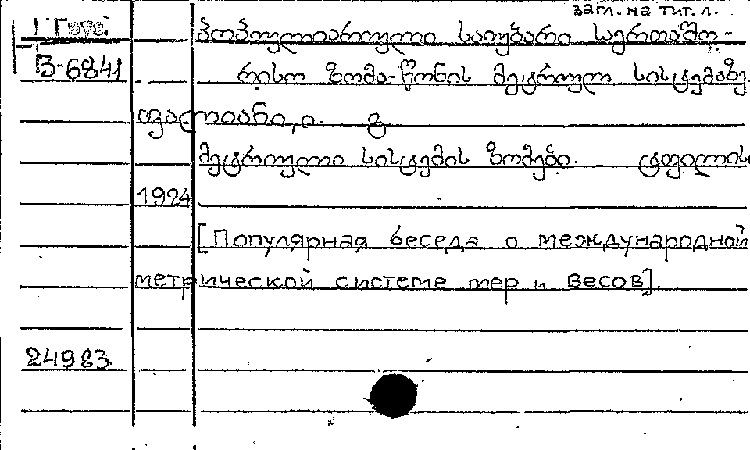 заг. на тит. л.
1 Груз.
პოპულიარული საუბარი საერთაშო-
3-6841
რისო ზომა-წონის მეტრულ სისტემაზე.
თვალთიანი, ა. გ
მეტრიული სისტემის ზომები. ტფილისი
1924
[Популярная беседа о международной
метрической системе мер и весов].
24983